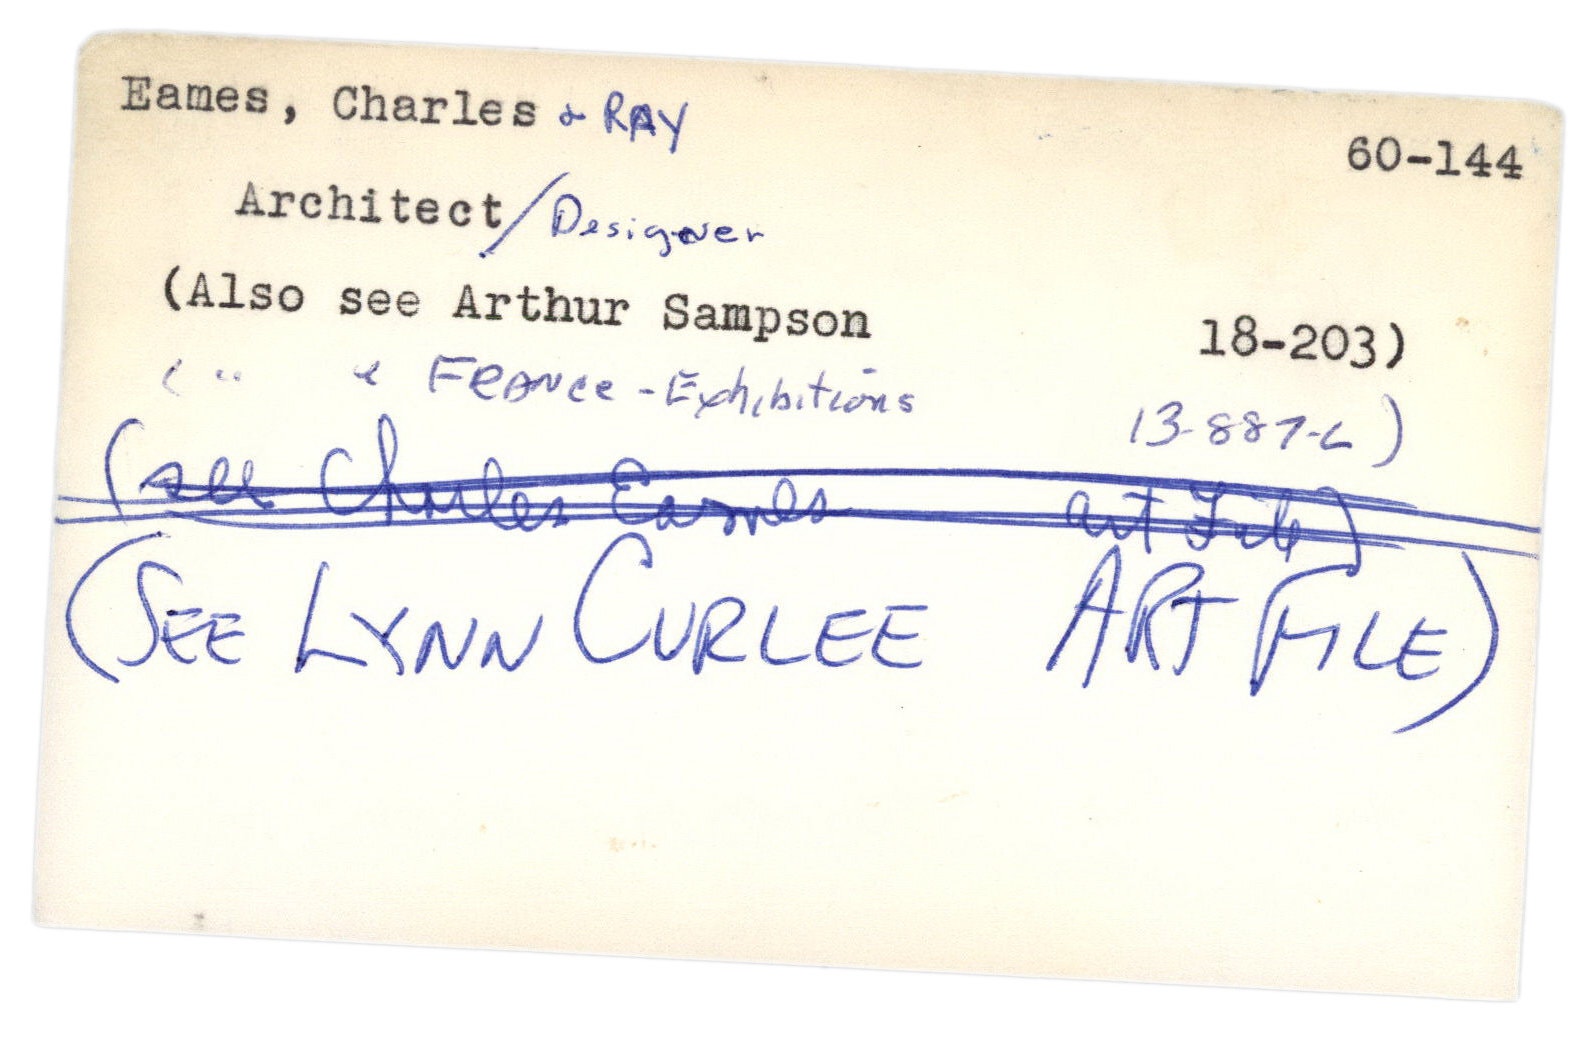 Eames, Charles & RAY 60-144
Architect/Designer
(Also see Arthur Sampson 18-203)
( " " FRANCE - Exhibitions 13-887-L)
(see Charles Eames art File)
(SEE LYNN CURLEE ART FILE)